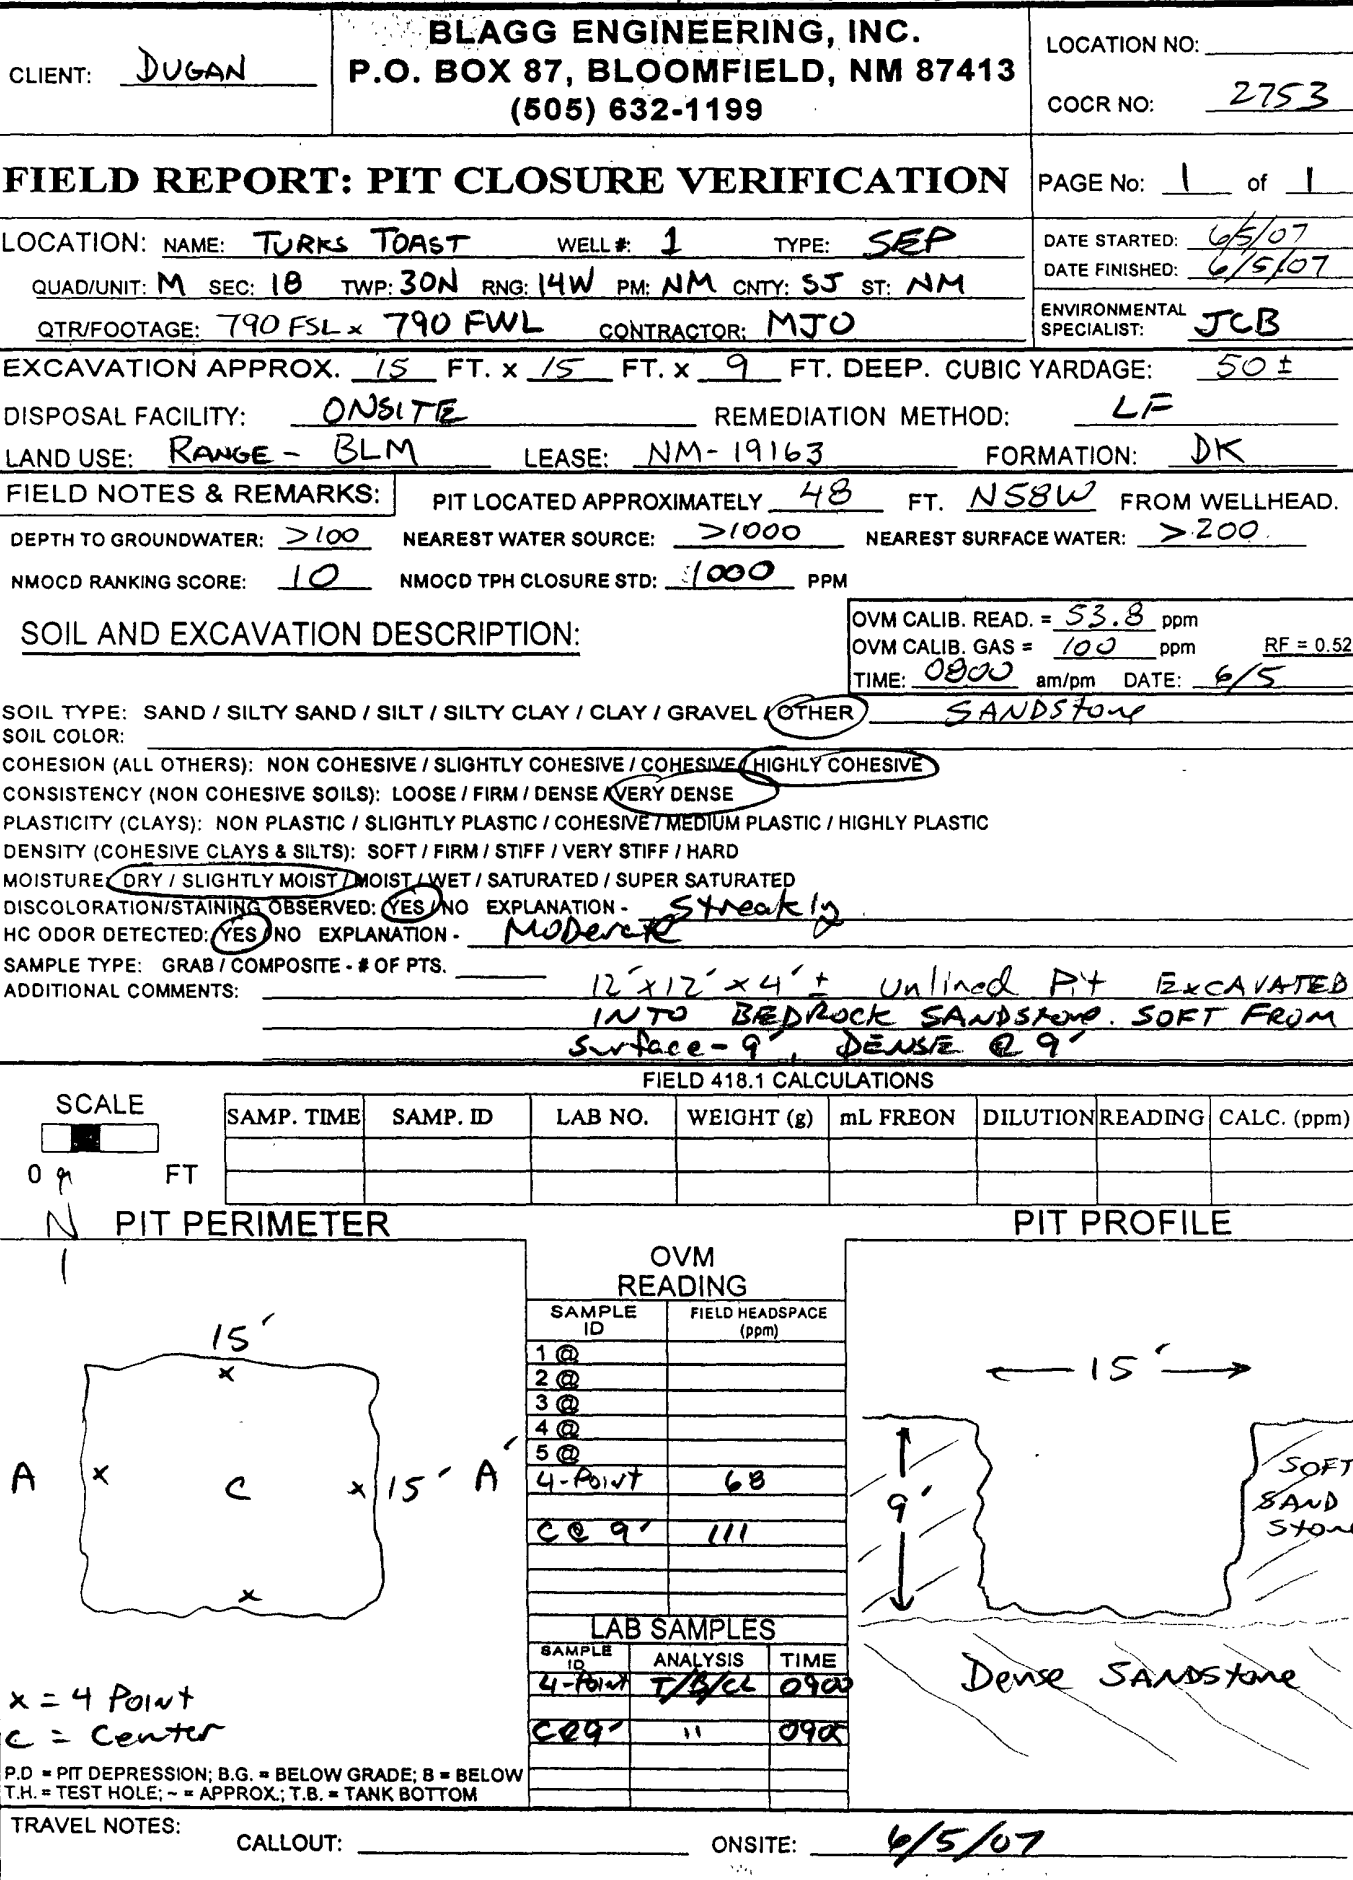 BLAGG ENGINEERING, INC.
P.O. BOX 87, BLOOMFIELD, NM 87413
(505) 632-1199
CLIENT: DUGAN
LOCATION NO:
COCR NO: 2753
FIELD REPORT: PIT CLOSURE VERIFICATION
PAGE No: 1 of 1
LOCATION: NAME: TURKS TOAST WELL #: 1 TYPE: SEP
QUAD/UNIT: M SEC: 18 TWP: 30N RNG: 14W PM: NM CNTY: SJ ST: NM
QTR/FOOTAGE: 790 FSL x 790 FWL CONTRACTOR: MJO
DATE STARTED: 6/5/07
DATE FINISHED: 6/5/07
ENVIRONMENTAL
SPECIALIST: JCB
EXCAVATION APPROX. 15 FT. x 15 FT. x 9 FT. DEEP. CUBIC YARDAGE: 50 ±
DISPOSAL FACILITY: ONSITE REMEDIATION METHOD: LF
LAND USE: RANGE - BLM LEASE: NM-19163 FORMATION: DK
FIELD NOTES & REMARKS: PIT LOCATED APPROXIMATELY 48 FT. N58W FROM WELLHEAD.
DEPTH TO GROUNDWATER: >100 NEAREST WATER SOURCE: >1000 NEAREST SURFACE WATER: >200
NMOCD RANKING SCORE: 10 NMOCD TPH CLOSURE STD: 1000 PPM
SOIL AND EXCAVATION DESCRIPTION:
OVM CALIB. READ. = 53.8 ppm
OVM CALIB. GAS = 100 ppm RF = 0.52
TIME: 0800 am/pm DATE: 6/5
SOIL TYPE: SAND / SILTY SAND / SILT / SILTY CLAY / CLAY / GRAVEL / OTHER SANDStone
SOIL COLOR:
COHESION (ALL OTHERS): NON COHESIVE / SLIGHTLY COHESIVE / COHESIVE / HIGHLY COHESIVE
CONSISTENCY (NON COHESIVE SOILS): LOOSE / FIRM / DENSE / VERY DENSE
PLASTICITY (CLAYS): NON PLASTIC / SLIGHTLY PLASTIC / COHESIVE / MEDIUM PLASTIC / HIGHLY PLASTIC
DENSITY (COHESIVE CLAYS & SILTS): SOFT / FIRM / STIFF / VERY STIFF / HARD
MOISTURE: DRY / SLIGHTLY MOIST / MOIST / WET / SATURATED / SUPER SATURATED
DISCOLORATION/STAINING OBSERVED: YES / NO EXPLANATION - Streakly
HC ODOR DETECTED: YES / NO EXPLANATION - MODerate
SAMPLE TYPE: GRAB / COMPOSITE - # OF PTS.
ADDITIONAL COMMENTS: 12' x 12' x 4' ± Unlined Pit ExCAVATED
INTO BEDROCK SANDStone. SOFT FROM
Surface - 9', DENSE @ 9'
FIELD 418.1 CALCULATIONS
SCALE
0 FT
SAMP. TIME SAMP. ID LAB NO. WEIGHT (g) mL FREON DILUTION READING CALC. (ppm)
N
PIT PERIMETER
15'
A
C
15'
A'
x = 4 Point
C = Center
P.D = PIT DEPRESSION; B.G. = BELOW GRADE; B = BELOW
T.H. = TEST HOLE; ~ = APPROX.; T.B. = TANK BOTTOM
OVM
READING
SAMPLE ID FIELD HEADSPACE (ppm)
1 @
2 @
3 @
4 @
5 @
4-Point 68
C @ 9' 111
LAB SAMPLES
SAMPLE ID ANALYSIS TIME
4-Point T/B/CL 0900
C@9' " 0905
PIT PROFILE
15'
9'
SOFT
SAND
Stone
Dense SANDStone
TRAVEL NOTES:
CALLOUT: ONSITE: 6/5/07